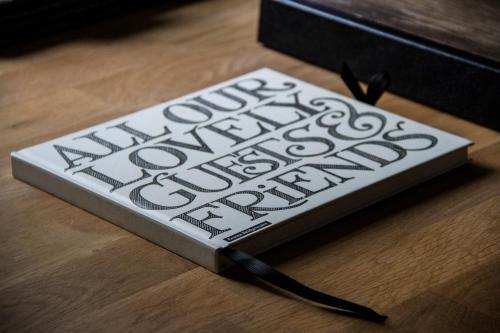 ALL OUR
LOVELY
GUESTS &
FRiENDS